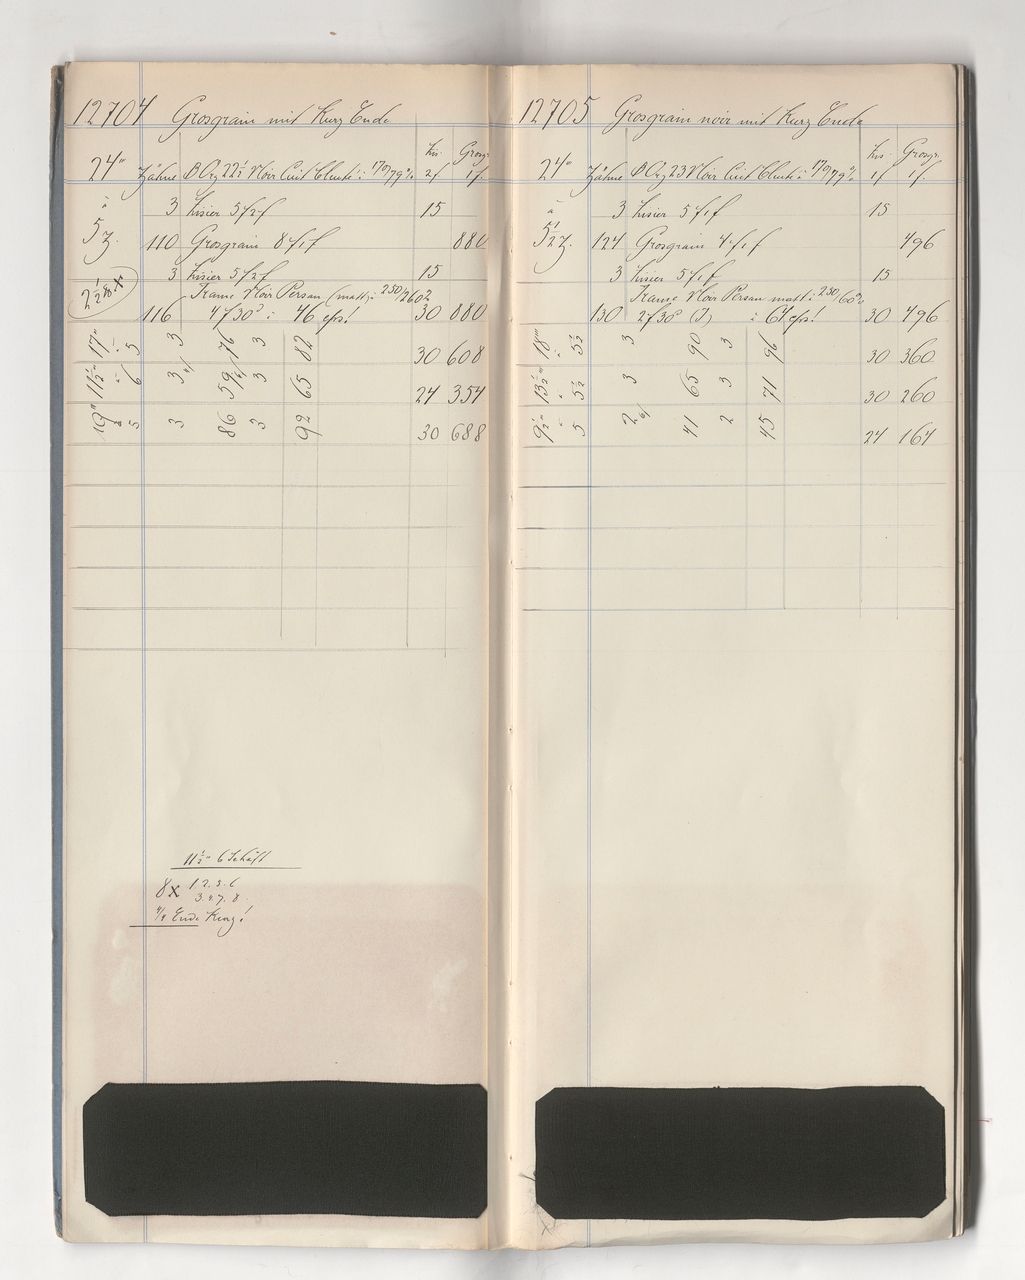 12704 Grosgrain mit Kurz Ende
Lis. Grosgr.
24''' Zähne B Org 22½ Noir Cuit Chuté à 170/79% 2f 1f.
à 3 Lisier 5f2f 15
5 z. 110 Grosgrain 8f1f 880
3 Lisier 5f2f 15
2½ Trame Noir Persan (matt) à 250/260%
116 4f30d à 46 cps! 30 880
17''' à 5 3 76 3 82 30 608
11½''' à 6 3 59 3 65 24 354
19''' à 5 3 86 3 92 30 688
11½''' 6 Schäft
8x 1.2.5.6
3.4.7.8
4/4 Ende Kurz!
12705 Grosgrain noir mit Kurz Ende
Lis. Grosgr.
24''' Zähne B Org 23 Noir Cuit Chuté à 170/79% 1f 1f.
à 3 Lisier 5f1f 15
5½ z. 124 Grosgrain 4f1f 496
3 Lisier 5f1f 15
Trame Noir Persan matt à 250/60%
130 2f30d à 64 cps! 30 496
18''' à 5½ 3 90 3 96 30 360
13½''' à 5½ 3 65 3 71 30 260
9½''' à 5 2 41 2 45 24 164